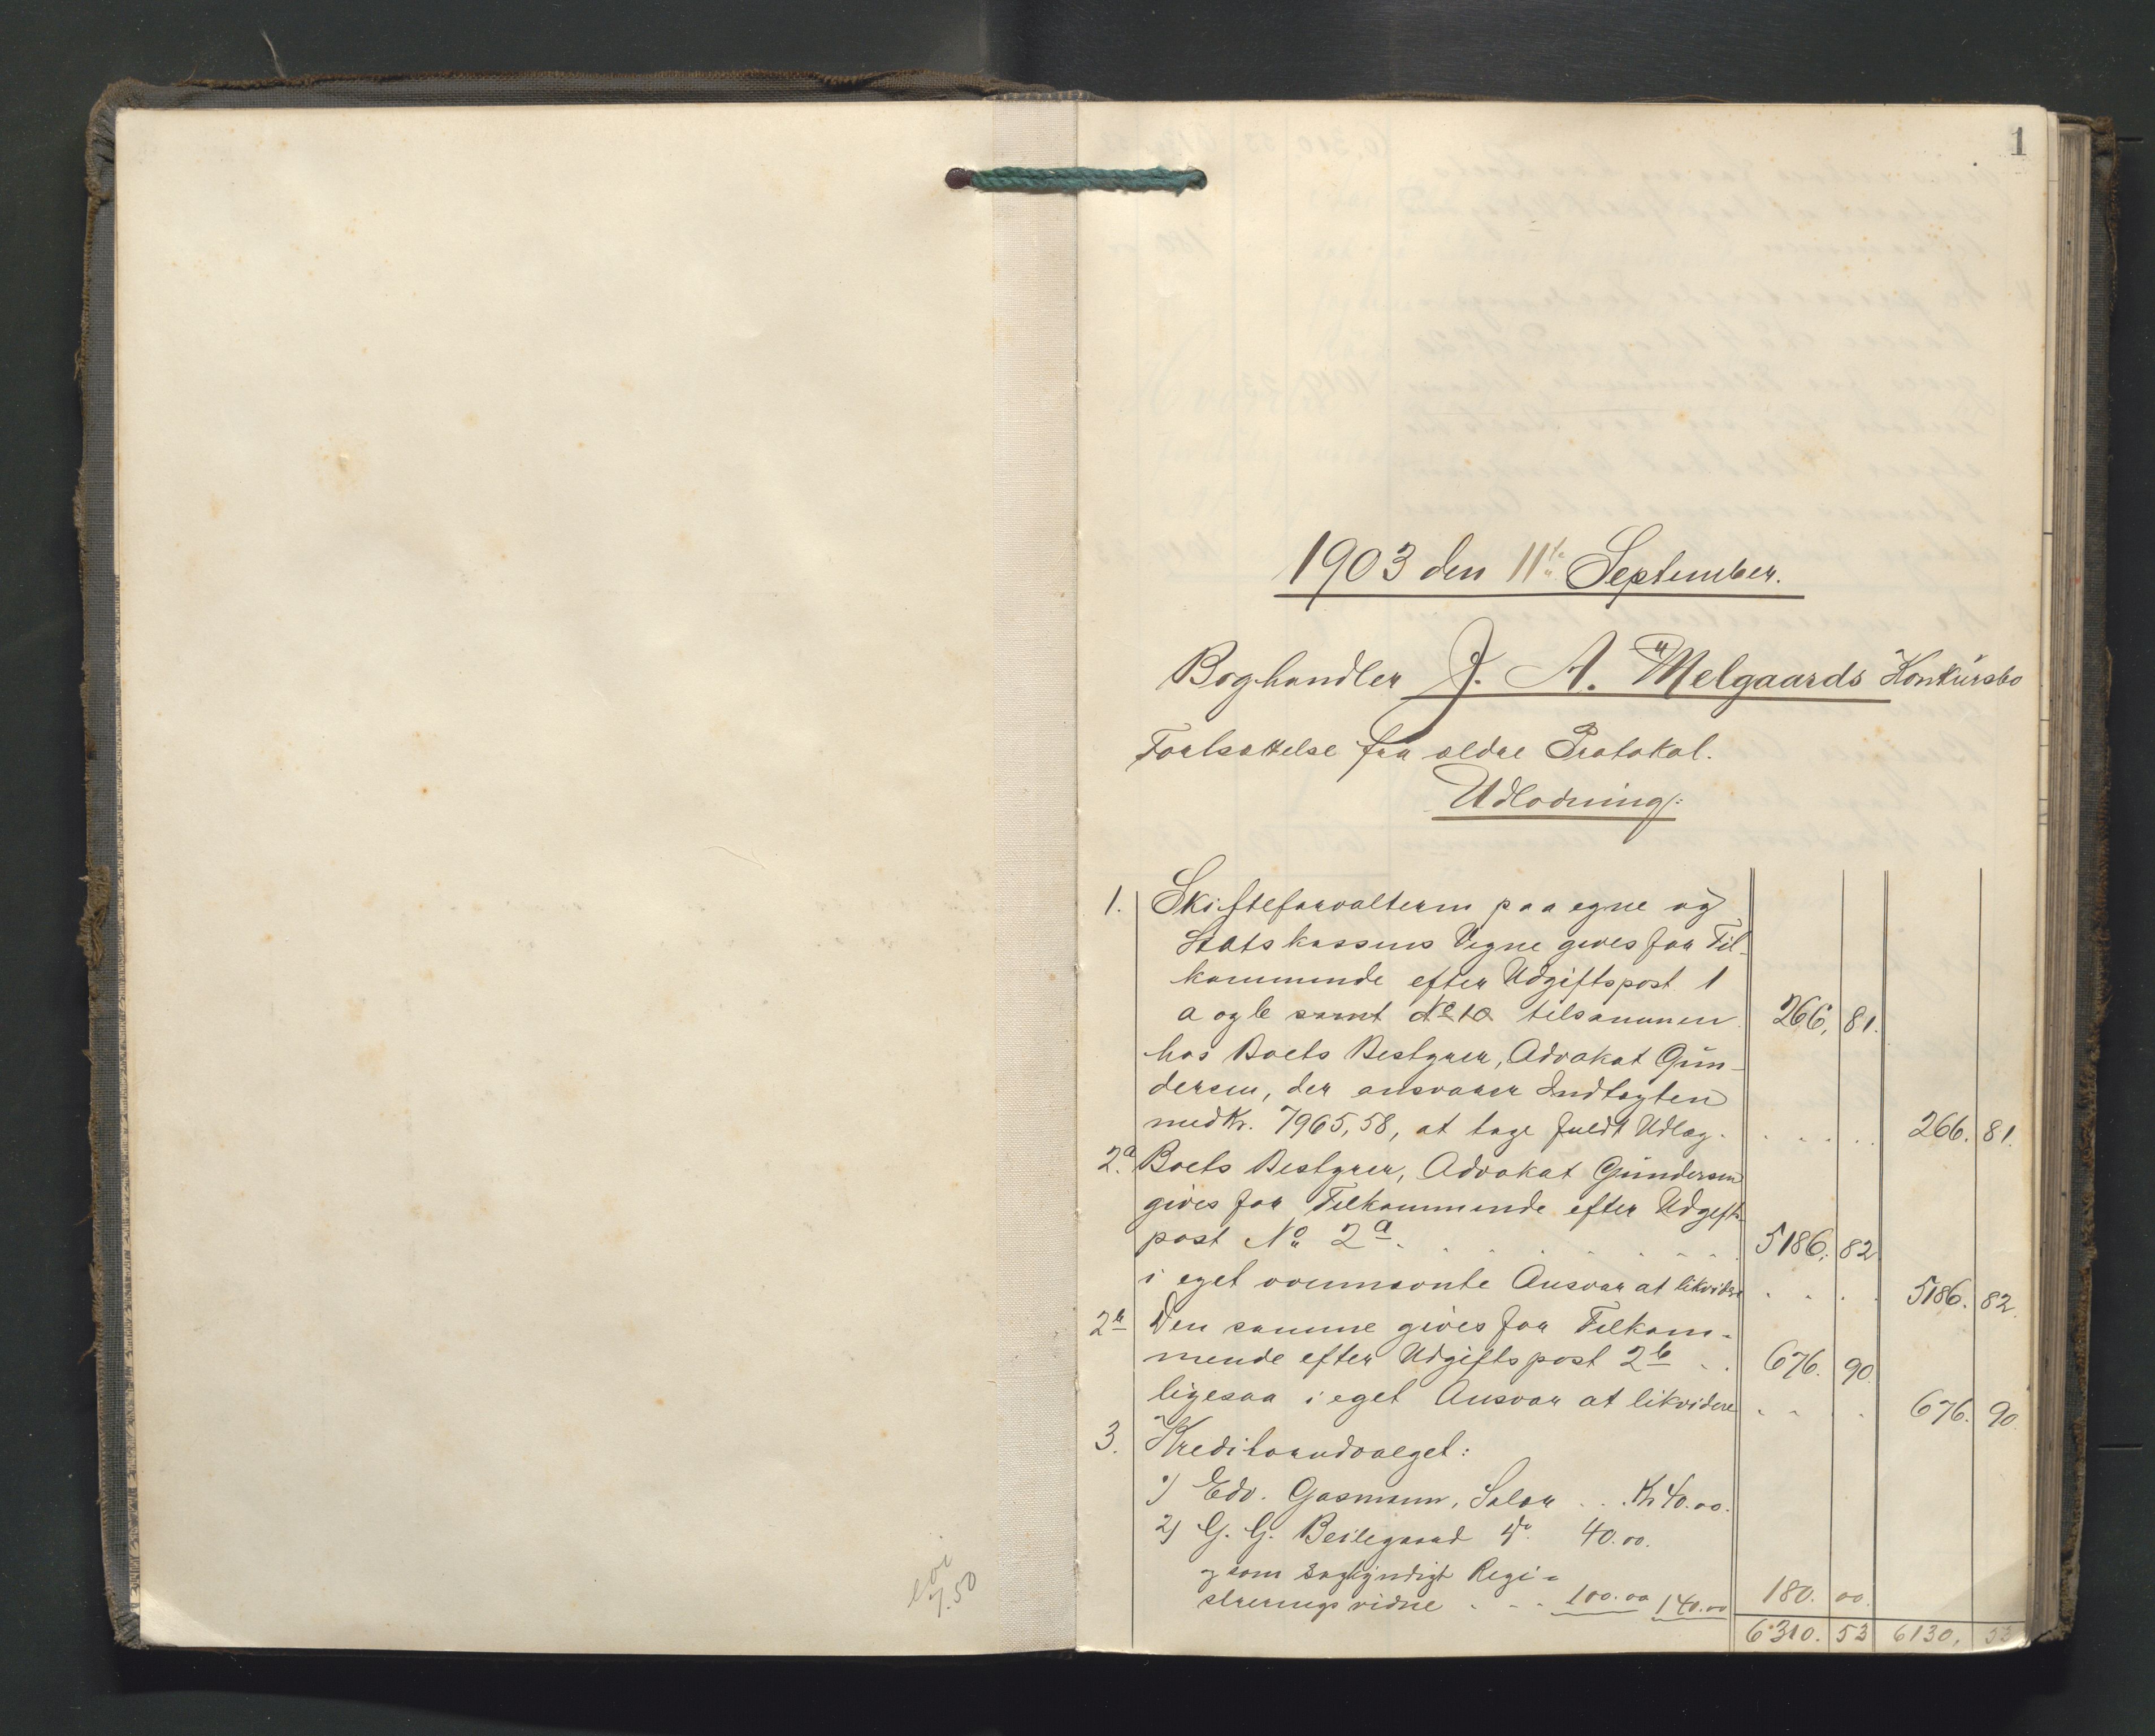 1
1903 den 11te September.
Boghandler J. A. Melgaards Konkursbo
Fortsættelse fra ældre Protokol.
Udlodning:
1. Skifteforvalteren paa egne og
Statskassens Vegne gives for Til-
kommende efter Udgiftspost 1
a og b samt No 10 tilsammen 266, 81.
hos Boets Bestyrer, Advokat Gun-
dersen, der ansvarer Indtægten
med Kr. 7965,58, at tage fuldt Udlæg. . . . . 266. 81.
2.a Boets Bestyrer, Advokat Gundersen
gives for Tilkommende efter Udgifts-
post No 2a . . . . . . . 5186. 82.
i eget ovennævnte Ansvar at likvidere . . . . 5186. 82.
2b Den samme gives for Tilkom-
mende efter Udgiftspost 2b . . 676. 90.
ligesaa i eget Ansvar at likvidere . . . 676. 90.
3. Kreditorudvalget:
1) Edv. Gasmann, Salær . . . Kr 40.00.
2) G. G. Beilegaard do 40.00.
og som sagkyndigt Regi-
streringsvidne . . . 100.00 140.00 180. 00.
6310. 53 6130, 53
7.50